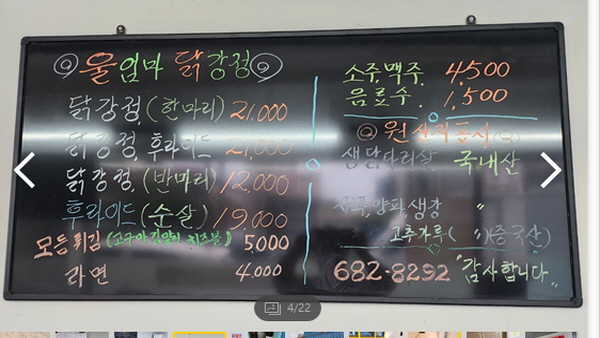 울엄마 닭강정
닭강정(한마리) 21,000
닭강정, 후라이드 21,000
닭강정, (반마리) 12,000
후라이드(순살) 19,000
모듬튀김 (고구마 김말이 치즈볼) 5,000
라면 4,000
소주, 맥주. 4,500
음료수. 1,500
원산지표시
생닭다리살 국내산
양파, 생강 〃
고추가루( 〃)(중국산)
682-8292 "감사합니다"
4/22